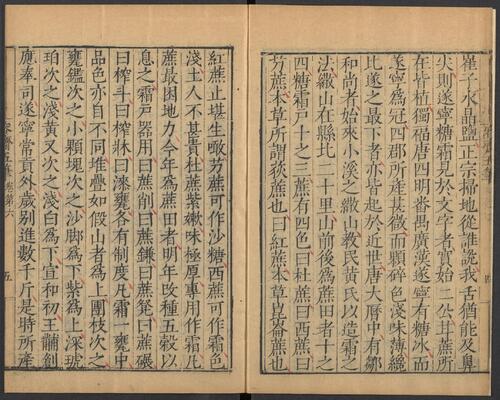 崔子水晶鹽正宗掃地從誰說我舌猶能及鼻
尖則遂寧糖霜見於文字者實始二公甘蔗所
在皆植獨福唐四明番禺廣漢遂寧有糖冰而
遂寧為冠四郡所產甚微而顆碎色淺味薄纔
比遂之最下者亦皆起於近世唐大曆中有鄒
和尚者始來小溪之繖山教民黃氏以造霜之
法繖山在縣北二十里山前後為蔗田者十之
四糖霜戶十之三蔗有四色曰杜蔗曰西蔗曰
艻蔗本草所謂荻蔗也曰紅蔗本草崑崙蔗也
紅蔗止堪生噉艻蔗可作沙糖西蔗可作霜色
淺土人不甚貴杜蔗紫嫩味極厚專用作霜凡
蔗最困地力今年為蔗田者明年改種五穀以
息之霜戶器用曰蔗削曰蔗鎌曰蔗凳曰蔗碾
曰榨斗曰榨牀曰漆甕各有制度凡霜一甕中
品色亦自不同堆疊如假山者為上團枝次之
甕鑑次之小顆塊次之沙脚為下紫為上深琥
珀次之淺黃又次之淺白為下宣和初王黼創
應奉司遂寧常貢外歲別進數千斤是時所產
卷第六
五